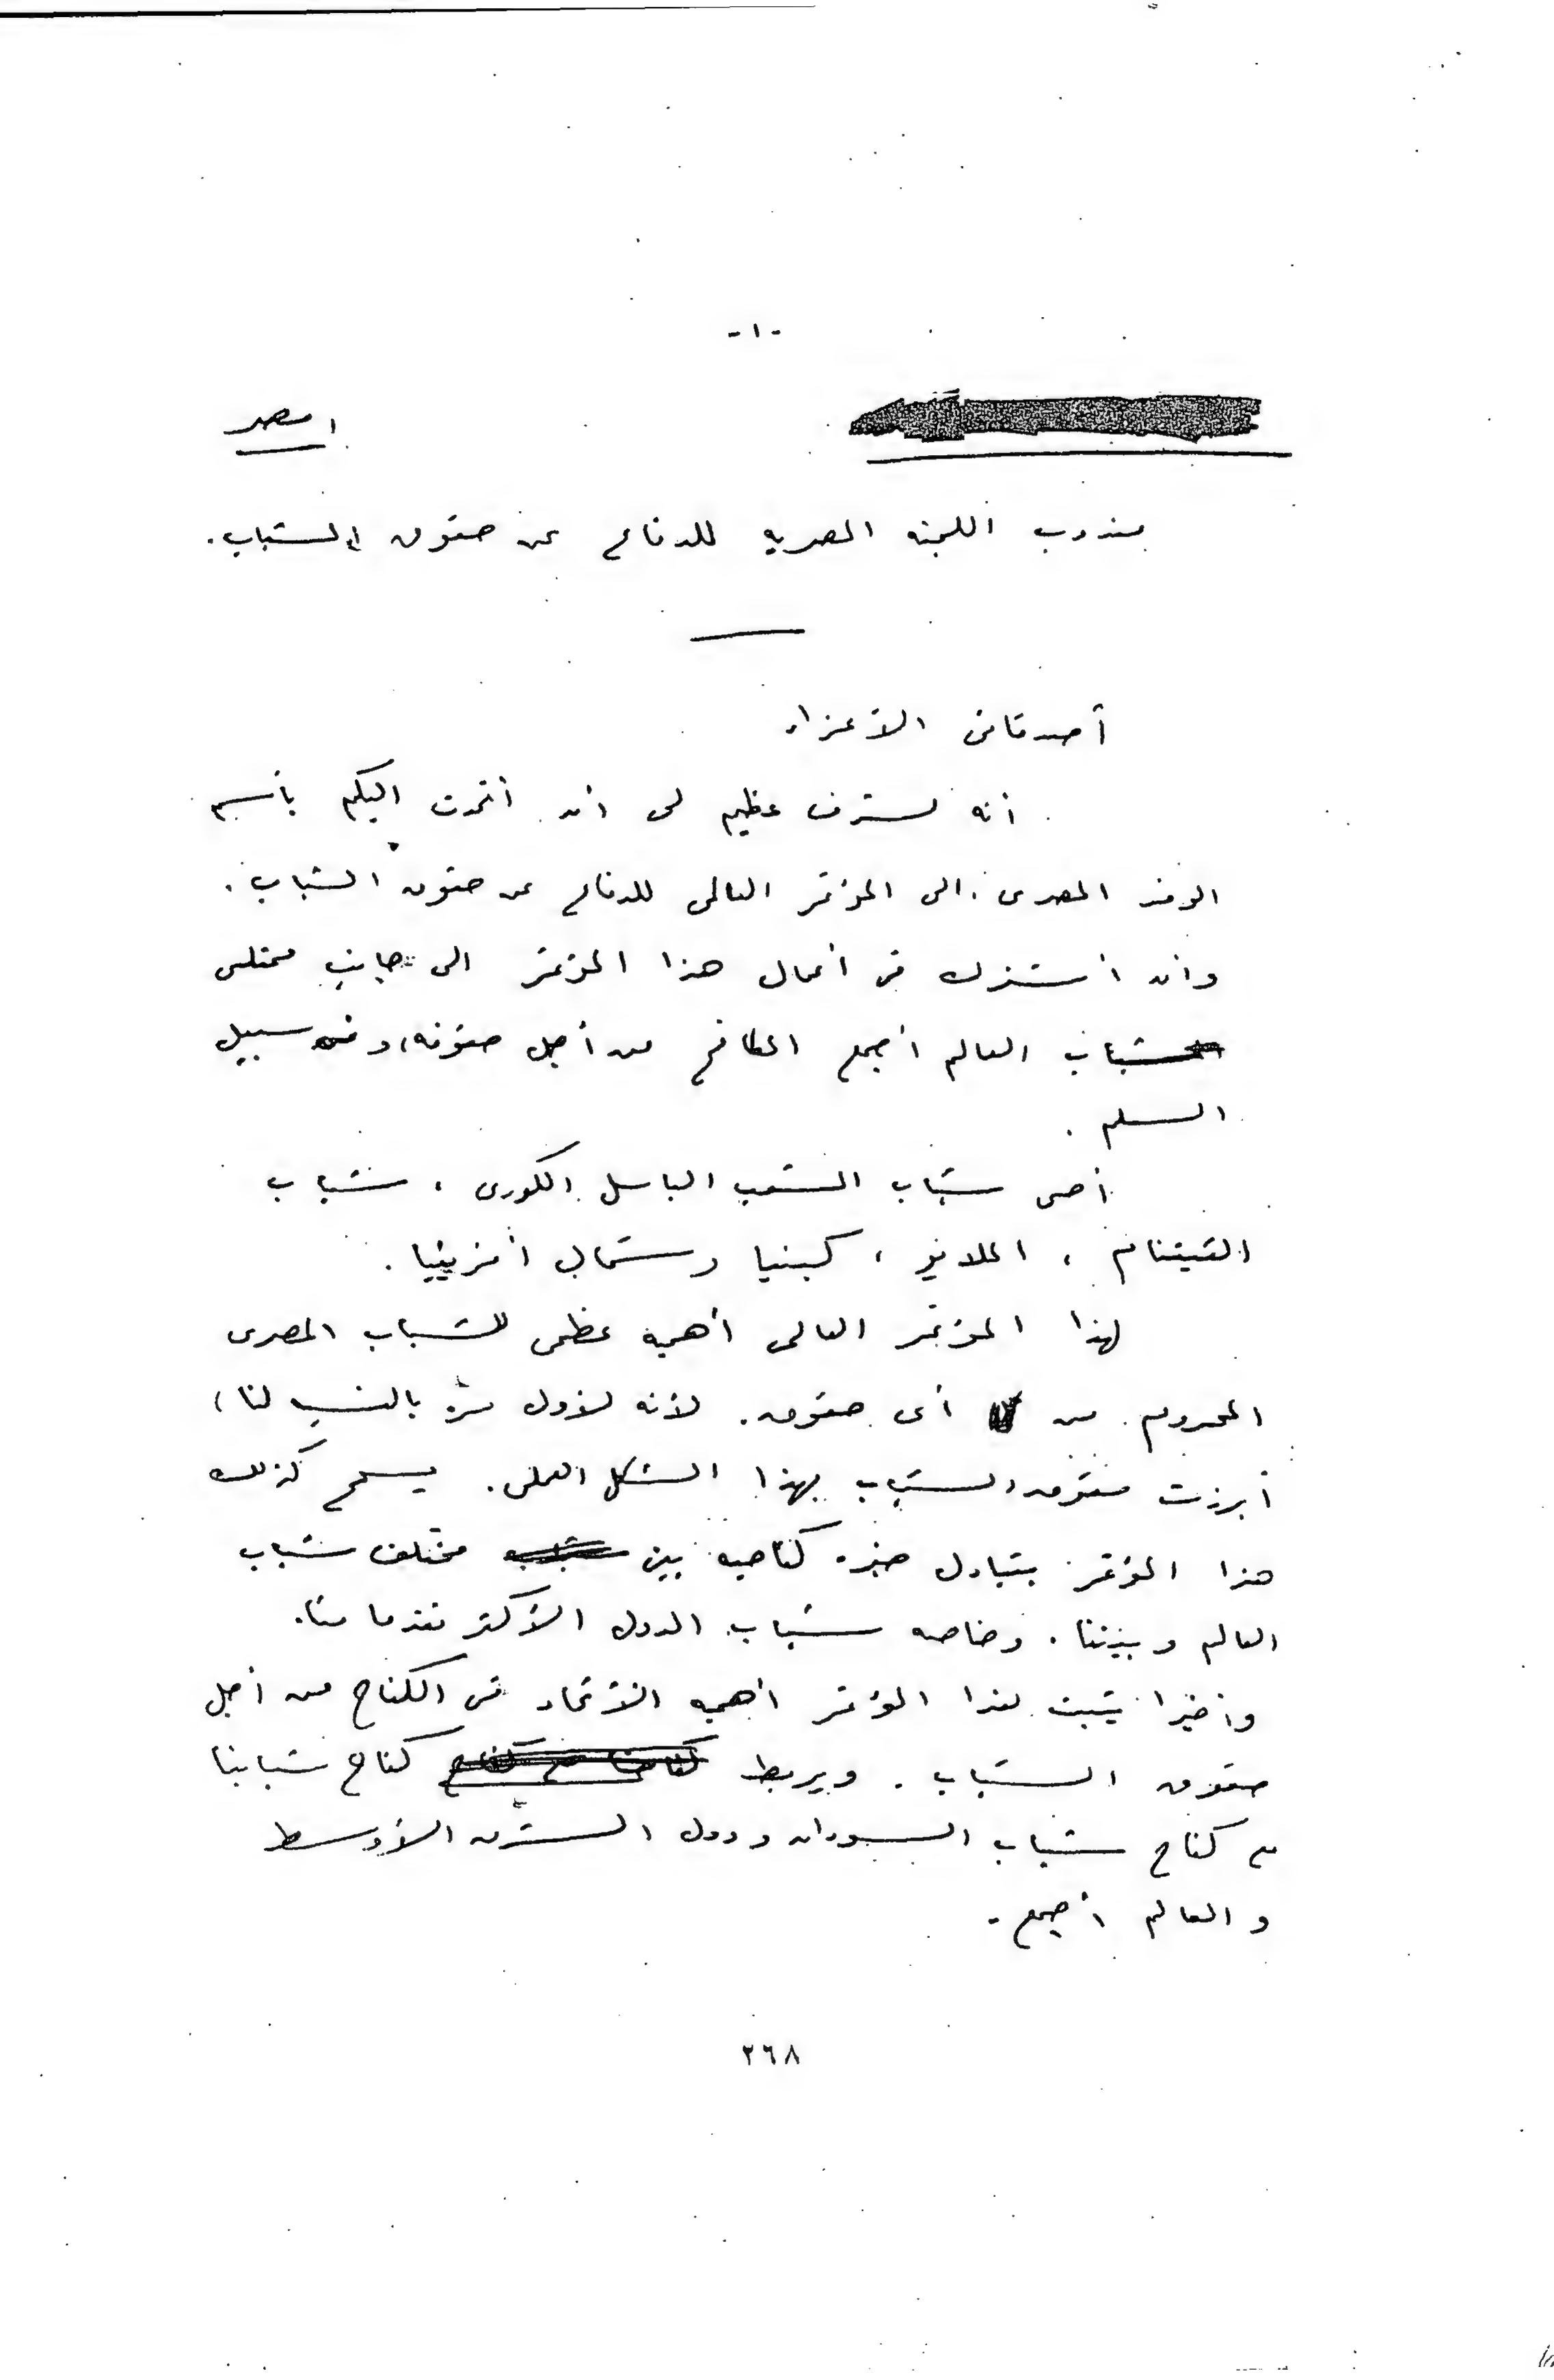 -١-
مصر
مندوب اللجنه المصريه للدفاع عن حقوق الشباب.
أصدقائى الأعزاء
أنه لشرف عظيم لى أن أتحدث اليكم بأسم
الوفد المصرى الى المؤتمر العالمى للدفاع عن حقوق الشباب.
وأن أشترك فى أعمال هذا المؤتمر الى جانب ممثلى
شباب العالم أجمع المكافح من أجل حقوقه، وفى سبيل
السلم.
أحى شباب الشعب الباسل الكورى، شباب
الفيتنام، الملايو، كينيا وشمال أفريقيا.
لهذا المؤتمر العالمى أهميه عظمى للشباب المصرى
المحروم من أى حقوق. لأنه لأول مرة بالنسبه لنا،
أبرزت حقوق الشباب بهذا الشكل العملى. يسمح كذلك
هذا المؤتمر بتبادل خبره كفاحيه بين مختلف شباب
العالم وبيننا. وخاصه شباب الدول الأكثر تقدما منا.
وأخيرا يثبت هذا المؤتمر أهميه الأتحاد فى الكفاح من أجل
حقوق الشباب. ويربط كفاح شبابنا
مع كفاح شباب السودان ودول الشرق الأوسط
والعالم أجمع.
٢٦٨